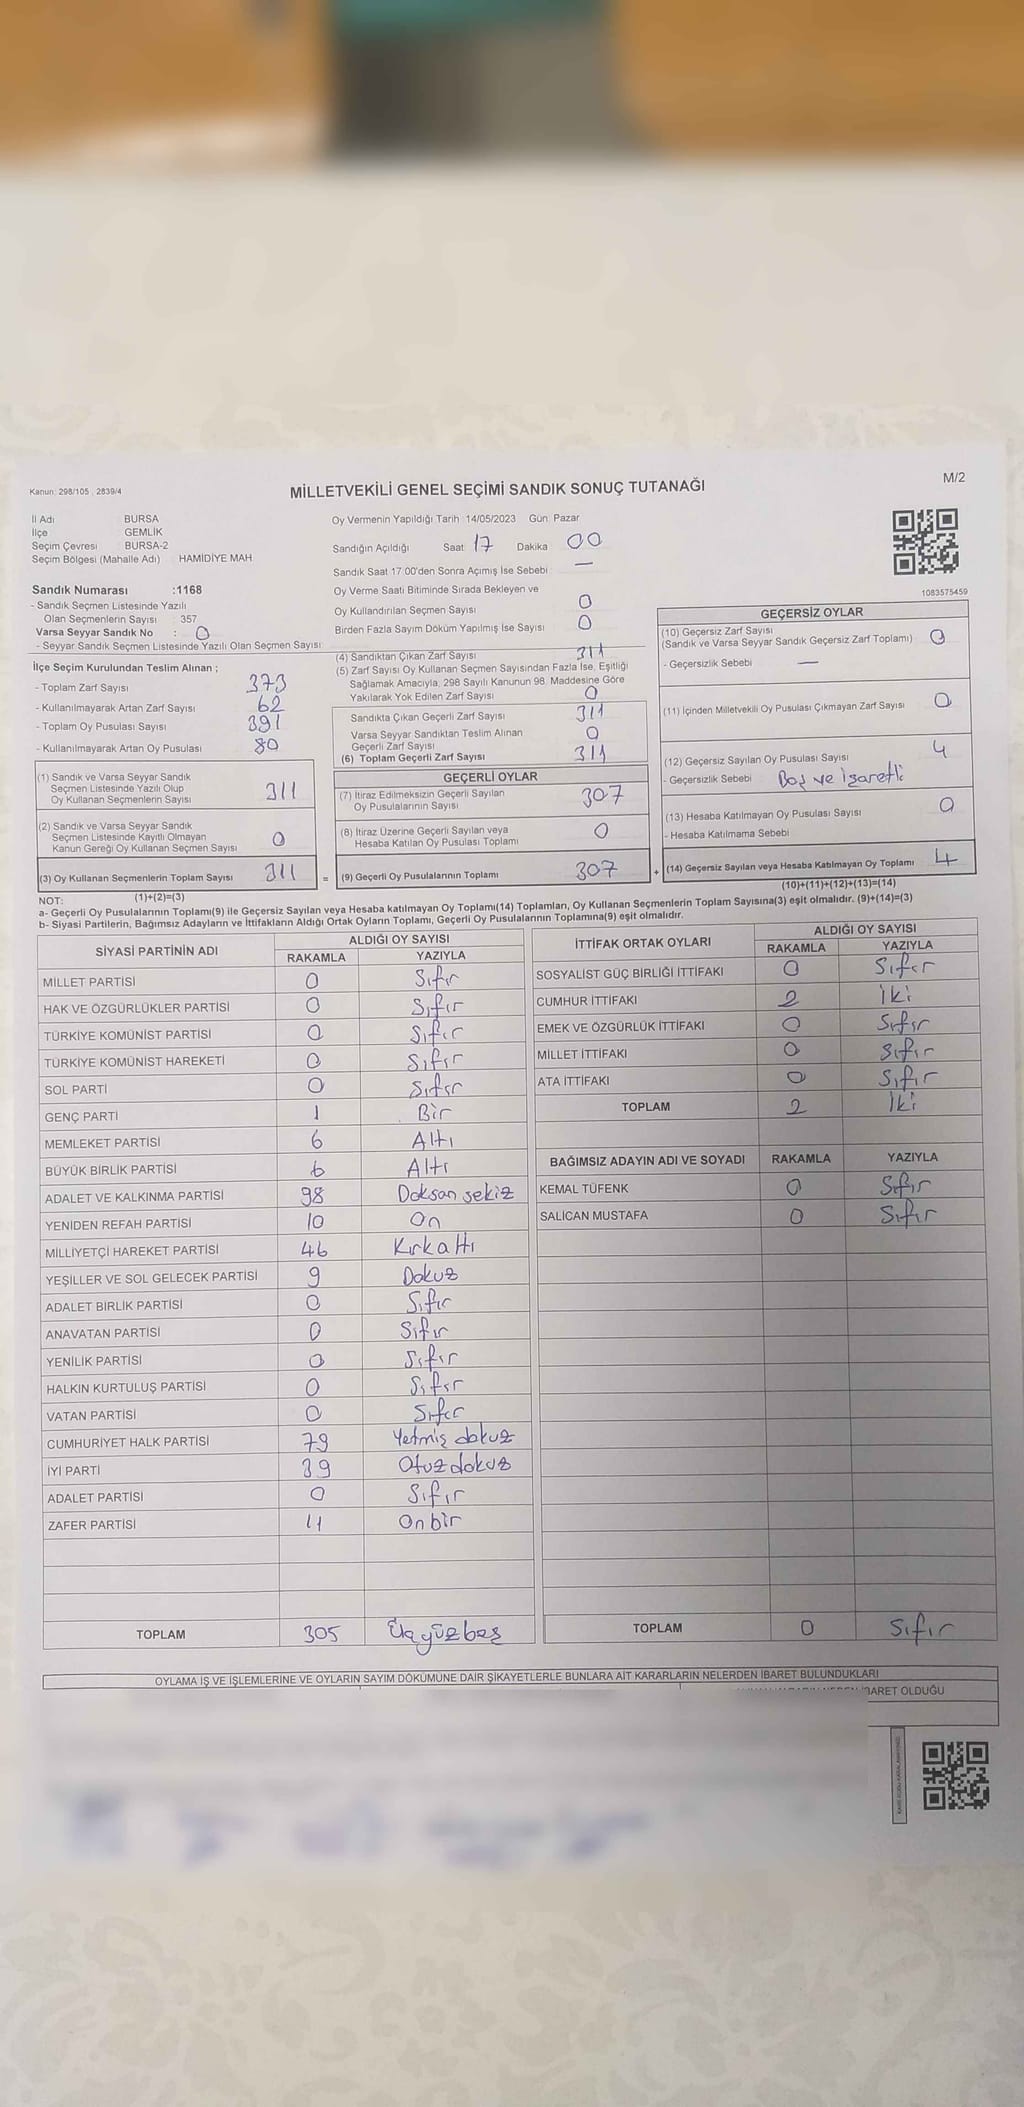 M/2
Kanun: 298/105 , 2839/4
MİLLETVEKİLİ GENEL SEÇİMİ SANDIK SONUÇ TUTANAĞI
İl Adı BURSA
İlçe GEMLİK
Seçim Çevresi BURSA-2
Seçim Bölgesi (Mahalle Adı) HAMİDİYE MAH.
Sandık Numarası :1168
- Sandık Seçmen Listesinde Yazılı
Olan Seçmenlerin Sayısı : 357
Varsa Seyyar Sandık No : 0
- Seyyar Sandık Seçmen Listesinde Yazılı Olan Seçmen Sayısı
İlçe Seçim Kurulundan Teslim Alınan ;
- Toplam Zarf Sayısı 373
- Kullanılmayarak Artan Zarf Sayısı 62
- Toplam Oy Pusulası Sayısı 391
- Kullanılmayarak Artan Oy Pusulası 80
(1) Sandık ve Varsa Seyyar Sandık
Seçmen Listesinde Yazılı Olup
Oy Kullanan Seçmenlerin Sayısı 311
(2) Sandık ve Varsa Seyyar Sandık
Seçmen Listesinde Kayıtlı Olmayan
Kanun Gereği Oy Kullanan Seçmen Sayısı 0
(3) Oy Kullanan Seçmenlerin Toplam Sayısı 311 =
(1)+(2)=(3)
Oy Vermenin Yapıldığı Tarih :14/05/2023 Gün: Pazar
Sandığın Açıldığı Saat 17 Dakika 00
Sandık Saat 17:00'den Sonra Açımış İse Sebebi: —
Oy Verme Saati Bitiminde Sırada Bekleyen ve
Oy Kullandırılan Seçmen Sayısı 0
Birden Fazla Sayım Döküm Yapılmış İse Sayısı 0
(4) Sandıktan Çıkan Zarf Sayısı 311
(5) Zarf Sayısı Oy Kullanan Seçmen Sayısından Fazla İse, Eşitliği
Sağlamak Amacıyla, 298 Sayılı Kanunun 98. Maddesine Göre
Yakılarak Yok Edilen Zarf Sayısı 0
Sandıkta Çıkan Geçerli Zarf Sayısı 311
Varsa Seyyar Sandıktan Teslim Alınan
Geçerli Zarf Sayısı 0
(6) Toplam Geçerli Zarf Sayısı 311
GEÇERLİ OYLAR
(7) İtiraz Edilmeksizin Geçerli Sayılan
Oy Pusulalarının Sayısı 307
(8) İtiraz Üzerine Geçerli Sayılan veya
Hesaba Katılan Oy Pusulası Toplamı 0
(9) Geçerli Oy Pusulalarının Toplamı 307 +
1083575459
GEÇERSİZ OYLAR
(10) Geçersiz Zarf Sayısı
(Sandık ve Varsa Seyyar Sandık Geçersiz Zarf Toplamı) 0
- Geçersizlik Sebebi —
(11) İçinden Milletvekili Oy Pusulası Çıkmayan Zarf Sayısı 0
(12) Geçersiz Sayılan Oy Pusulası Sayısı 4
- Geçersizlik Sebebi Boş ve İşaretli
(13) Hesaba Katılmayan Oy Pusulası Sayısı 0
- Hesaba Katılmama Sebebi
(14) Geçersiz Sayılan veya Hesaba Katılmayan Oy Toplamı 4
(10)+(11)+(12)+(13)=(14)
NOT:
a- Geçerli Oy Pusulalarının Toplamı(9) ile Geçersiz Sayılan veya Hesaba katılmayan Oy Toplamı(14) Toplamları, Oy Kullanan Seçmenlerin Toplam Sayısına(3) eşit olmalıdır. (9)+(14)=(3)
b- Siyasi Partilerin, Bağımsız Adayların ve İttifakların Aldığı Ortak Oyların Toplamı, Geçerli Oy Pusulalarının Toplamına(9) eşit olmalıdır.
SİYASİ PARTİNİN ADI ALDIĞI OY SAYISI
RAKAMLA YAZIYLA
MİLLET PARTİSİ 0 Sıfır
HAK VE ÖZGÜRLÜKLER PARTİSİ 0 Sıfır
TÜRKİYE KOMÜNİST PARTİSİ 0 Sıfır
TÜRKİYE KOMÜNİST HAREKETİ 0 Sıfır
SOL PARTİ 0 Sıfır
GENÇ PARTİ 1 Bir
MEMLEKET PARTİSİ 6 Altı
BÜYÜK BİRLİK PARTİSİ 6 Altı
ADALET VE KALKINMA PARTİSİ 98 Doksan sekiz
YENİDEN REFAH PARTİSİ 10 On
MİLLİYETÇİ HAREKET PARTİSİ 46 Kırkaltı
YEŞİLLER VE SOL GELECEK PARTİSİ 9 Dokuz
ADALET BİRLİK PARTİSİ 0 Sıfır
ANAVATAN PARTİSİ 0 Sıfır
YENİLİK PARTİSİ 0 Sıfır
HALKIN KURTULUŞ PARTİSİ 0 Sıfır
VATAN PARTİSİ 0 Sıfır
CUMHURİYET HALK PARTİSİ 79 Yetmiş dokuz
İYİ PARTİ 39 Otuzdokuz
ADALET PARTİSİ 0 Sıfır
ZAFER PARTİSİ 11 Onbir
TOPLAM 305 Üçyüzbeş
İTTİFAK ORTAK OYLARI ALDIĞI OY SAYISI
RAKAMLA YAZIYLA
SOSYALİST GÜÇ BİRLİĞİ İTTİFAKI 0 Sıfır
CUMHUR İTTİFAKI 2 İki
EMEK VE ÖZGÜRLÜK İTTİFAKI 0 Sıfır
MİLLET İTTİFAKI 0 Sıfır
ATA İTTİFAKI 0 Sıfır
TOPLAM 2 İki
BAĞIMSIZ ADAYIN ADI VE SOYADI RAKAMLA YAZIYLA
KEMAL TÜFENK 0 Sıfır
SALİCAN MUSTAFA 0 Sıfır
TOPLAM 0 Sıfır
OYLAMA İŞ VE İŞLEMLERİNE VE OYLARIN SAYIM DÖKÜMÜNE DAİR ŞİKAYETLERLE BUNLARA AİT KARARLARIN NELERDEN İBARET BULUNDUKLARI
OLDUĞU